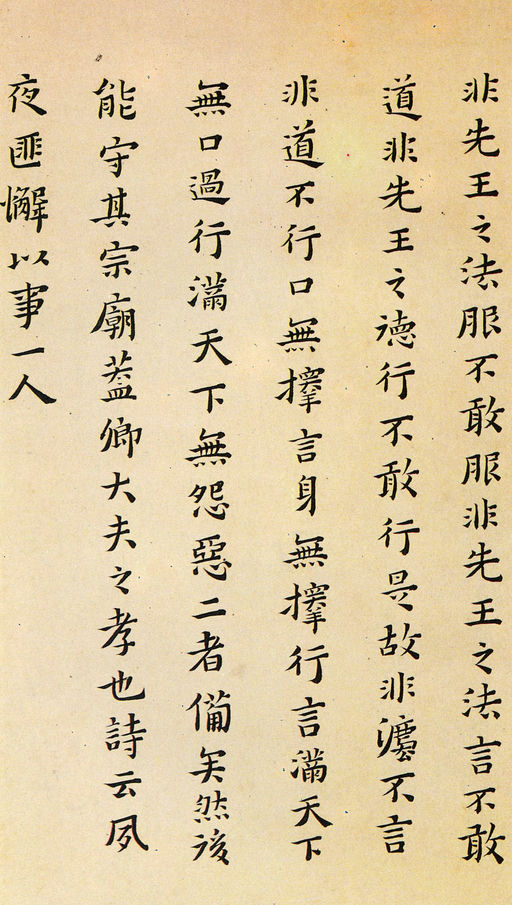 非先王之法服不敢服非先王之法言不敢
道非先王之德行不敢行是故非灋不言
非道不行口無擇言身無擇行言滿天下
無口過行滿天下無怨惡二者備矣然後
能守其宗廟蓋卿大夫之孝也詩云夙
夜匪懈以事一人